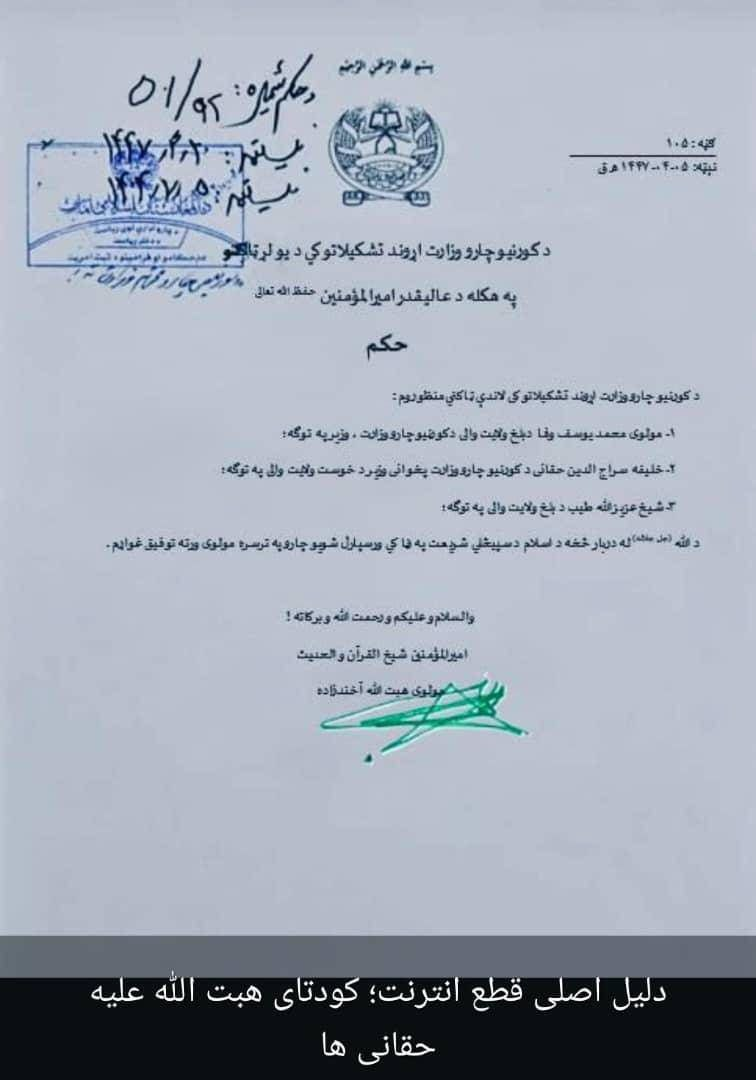 بسم الله الرحمن الرحیم
د حکم شمېره: ۵۱/۹۲
ګڼه: ۱۰۵
نېټه: ۰۵-۰۴-۱۴۴۷ هـ ق
د کورنیو چارو وزارت اړوند تشکیلاتو کي د یو لړ ټاکنو
په هکله د عالیقدر امیرالمؤمنین حفظه الله تعالی
حکم
د کورنیو چارو وزارت اړوند تشکیلاتو کي لاندي ټاکني منظوروم:
۱- مولوی محمد یوسف وفا د بلخ ولایت والی د کورنیو چارو وزارت، وزیر په توګه؛
۲- خلیفه سراج الدین حقانی د کورنیو چارو وزارت پخوانی وزیر د خوست ولایت والی په توګه؛
۳- شیخ عزیزالله طیب د بلخ ولایت والی په توګه؛
د الله (جل جلاله) له دربار څخه د اسلام د سپېڅلي شریعت په رڼا کي ورسپارل شویو چارو په ترسره مولوی ورته توفیق غواړم.
والسلام و علیکم و رحمت الله و برکاته!
امیرالمؤمنین شیخ القرآن والحدیث
مولوی هبت الله آخندزاده
دلیل اصلی قطع انترنت؛ کودتای هبت الله علیه
حقانی ها